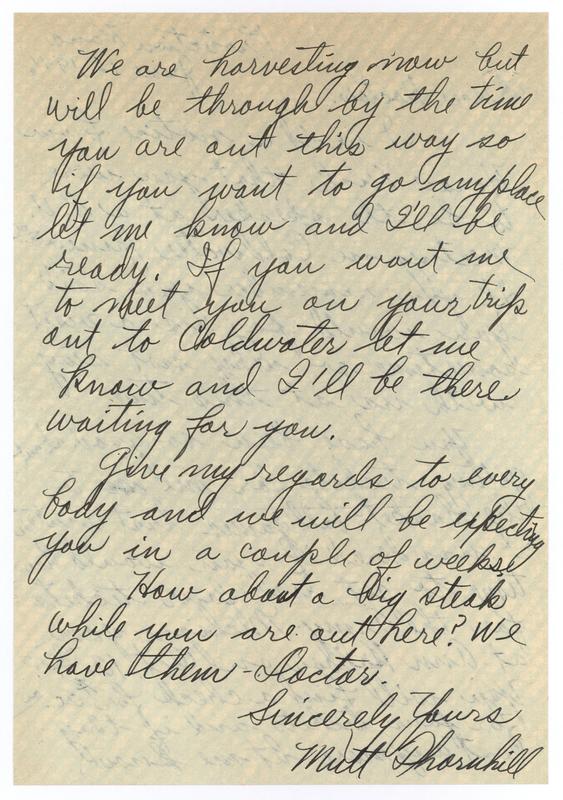 We are harvesting now but
will be through by the time
you are out this way so
if you want to go anyplace
let me know and I'll be
ready. If you want me
to meet you on your trip
out to Coldwater let me
know and I'll be there
waiting for you.
Give my regards to every
body and we will be expecting
you in a couple of weeks.
How about a big steak
while you are out here? We
have them - Doctor.
Sincerely Yours
Mutt Thornhill